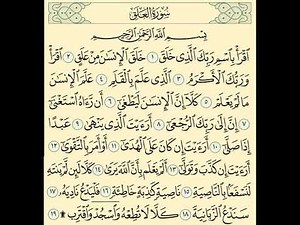 سورة العلق
بسم الله الرحمن الرحيم
ٱقۡرَأۡ بِٱسۡمِ رَبِّكَ ٱلَّذِي خَلَقَ ١ خَلَقَ ٱلۡإِنسَٰنَ مِنۡ عَلَقٍ ٢ ٱقۡرَأۡ
وَرَبُّكَ ٱلۡأَكۡرَمُ ٣ ٱلَّذِي عَلَّمَ بِٱلۡقَلَمِ ٤ عَلَّمَ ٱلۡإِنسَٰنَ
مَا لَمۡ يَعۡلَمۡ ٥ كَلَّآ إِنَّ ٱلۡإِنسَٰنَ لَيَطۡغَىٰٓ ٦ أَن رَّءَاهُ ٱسۡتَغۡنَىٰٓ
٧ إِنَّ إِلَىٰ رَبِّكَ ٱلرُّجۡعَىٰٓ ٨ أَرَءَيۡتَ ٱلَّذِي يَنۡهَىٰ ٩ عَبۡدًا
إِذَا صَلَّىٰٓ ١٠ أَرَءَيۡتَ إِن كَانَ عَلَى ٱلۡهُدَىٰٓ ١١ أَوۡ أَمَرَ بِٱلتَّقۡوَىٰٓ
١٢ أَرَءَيۡتَ إِن كَذَّبَ وَتَوَلَّىٰٓ ١٣ أَلَمۡ يَعۡلَم بِأَنَّ ٱللَّهَ يَرَىٰ ١٤ كَلَّا لَئِن لَّمۡ يَنتَهِ
لَنَسۡفَعَۢا بِٱلنَّاصِيَةِ ١٥ نَاصِيَةٖ كَٰذِبَةٍ خَاطِئَةٖ ١٦ فَلۡيَدۡعُ نَادِيَهُۥ ١٧
سَنَدۡعُ ٱلزَّبَانِيَةَ ١٨ كَلَّا لَا تُطِعۡهُ وَٱسۡجُدۡۤ وَٱقۡتَرِب۩ ١٩